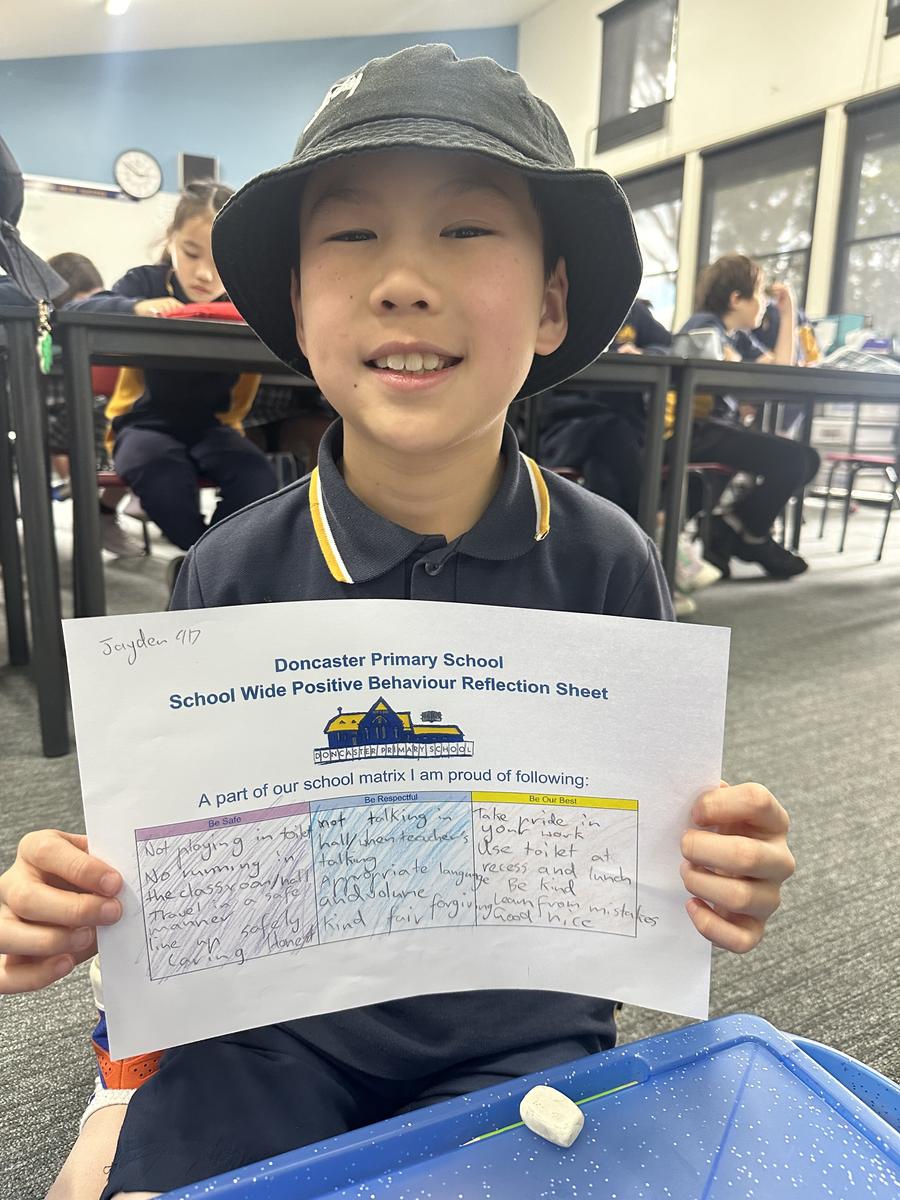 Jayden 4D
Doncaster Primary School
School Wide Positive Behaviour Reflection Sheet
DONCASTER PRIMARY SCHOOL
A part of our school matrix I am proud of following:
Be Safe
Not playing in toilet
No running in
the classroom/hall
Travel in a safe
manner
line up safely
caring Honest
Be Respectful
not talking in
hall/when teacher's
talking
Appropriate language
and volume
kind fair forgiving
Be Our Best
Take pride in
your work
Use toilet at
recess and lunch
Be kind
Learn from mistakes
Good nice